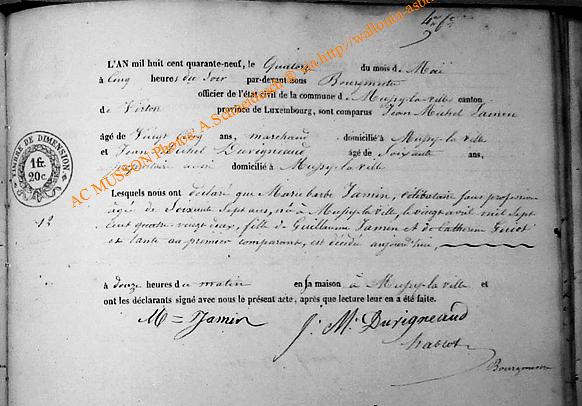 4e fe
L'AN mil huit cent quarante-neuf, le Quatorze du mois de Mai
à Cinq heures du Soir par-devant nous Bourgmestre
officier de l'état civil de la commune d e Mussy-la-ville canton
de Virton province de Luxembourg, sont comparus Jean Michel Jamin
âgé de Vingt ans, marchand domicilié à Mussy-la-ville
et Jean Michel Duvigneaud âgé de Soixante ans,
aussi domicilié à Mussy-la-ville
TIMBRE DE DIMENSION.
1 fr.
20 c.
Lesquels nous ont déclaré que Marie barbe Jamin, célibataire sans profession
âgée de Soixante Sept ans, née à Mussy-la-ville, le vingt avril mil Sept
Cent quatre vingt deux, fille de Guillaume Jamin et de Catherine
12
et tante au premier comparant, est décédée aujourd'hui,
à douze heures du matin en sa maison à Mussy-la-ville et
ont les déclarants signé avec nous le présent acte, après que lecture leur en a été faite.
M = Jamin J. M. Duvigneaud
Habrot
Bourgmestre
AC MUSSON Photos A. Schneidesch ® via http://walhouta-asbl